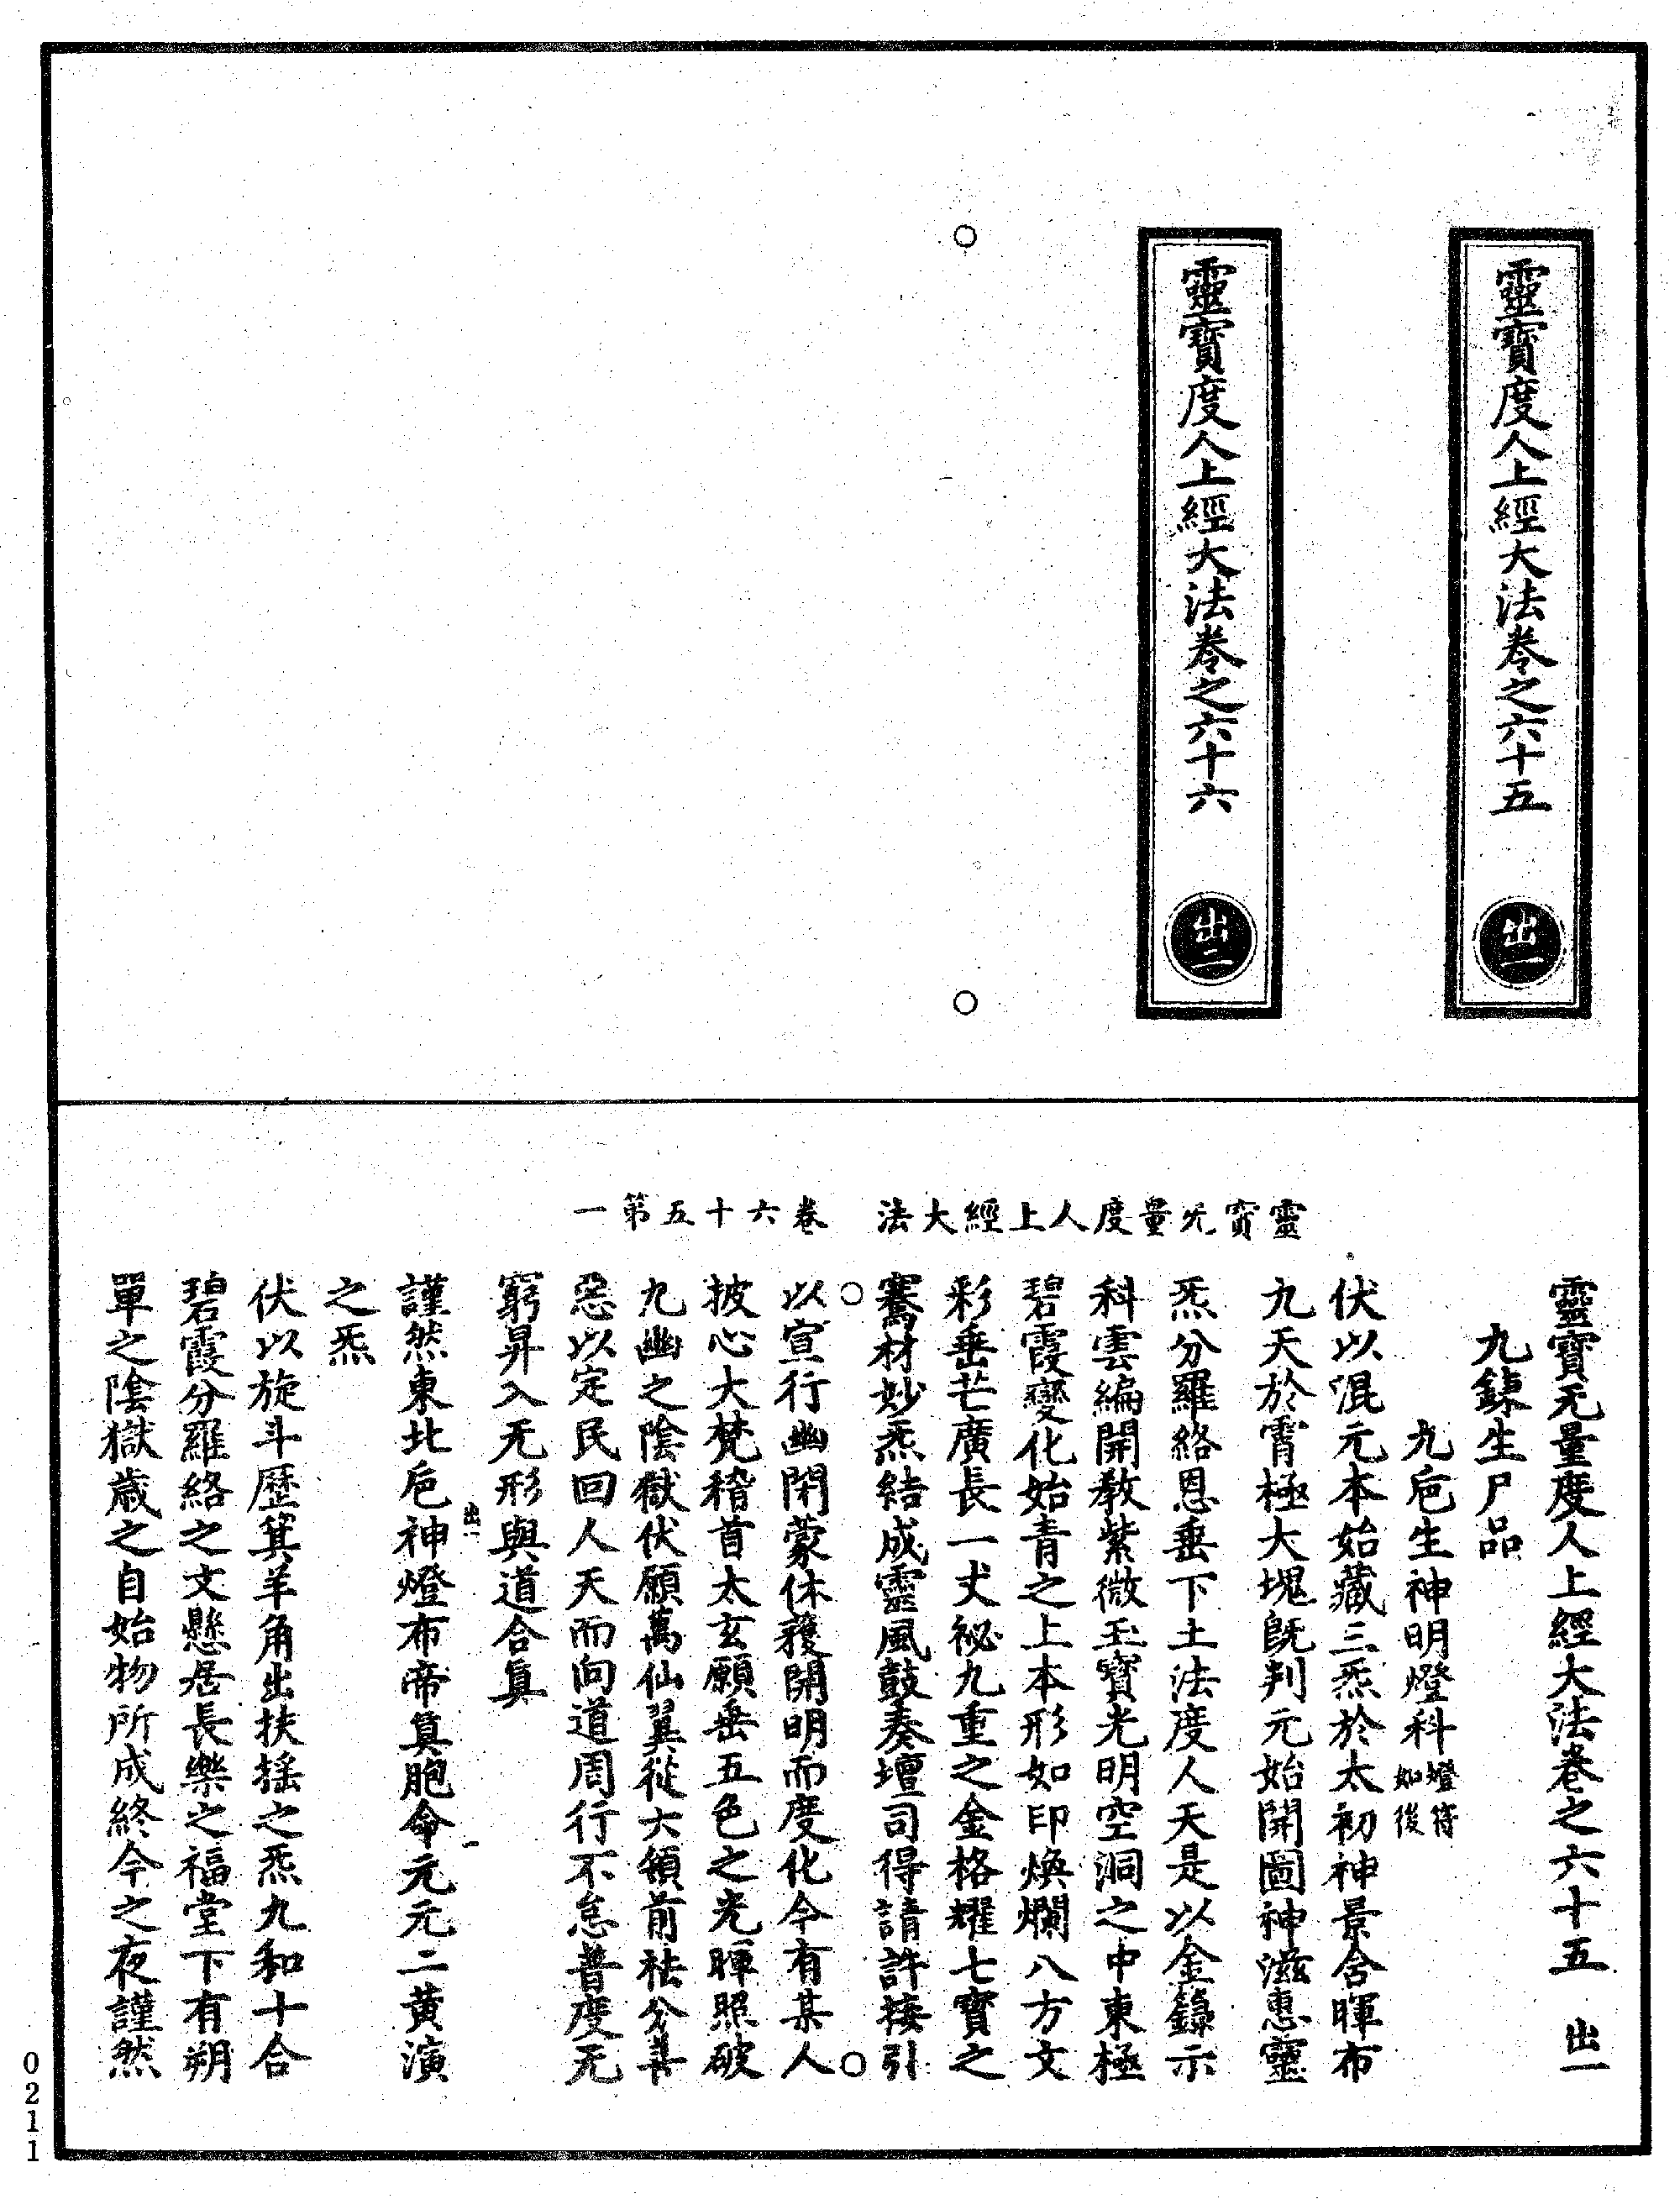 靈寶度人上經大法卷之六十五
出一
靈寶度人上經大法卷之六十六
出二
靈寶无量度人上經大法 卷六十五第一
靈寶无量度人上經大法卷之六十五 出一
九鍊生尸品
九巵生神明燈科燈符如後
伏以混元本始藏三炁於太初神景含暉布
九天於霄極大塊旣判元始開圖神滋惠靈
炁分羅絡恩垂下土法度人天是以金籙示
科雲編開教紫微玉寶光明空洞之中東極
碧霞變化始青之上本形如印煥爛八方文
彩垂芒廣長一丈祕九重之金格耀七寶之
騫材妙炁結成靈風鼓奏壇司得請許接引
以宣行幽閉蒙休獲開明而度化今有某人
披心大梵稽首太玄願垂五色之光暉照破
九幽之陰獄伏願萬仙翼從大領前祛分其
惡以定民回人天而向道周行不怠普度无
窮昇入无形與道合真
出一
謹然東北巵神燈布帝真胞命元元二黃演
一
之炁
伏以旋斗歷箕羊角出扶搖之炁九和十合
碧霞分羅絡之文懸居長樂之福堂下有朔
單之陰獄歲之自始物所成終今之夜謹然
0211